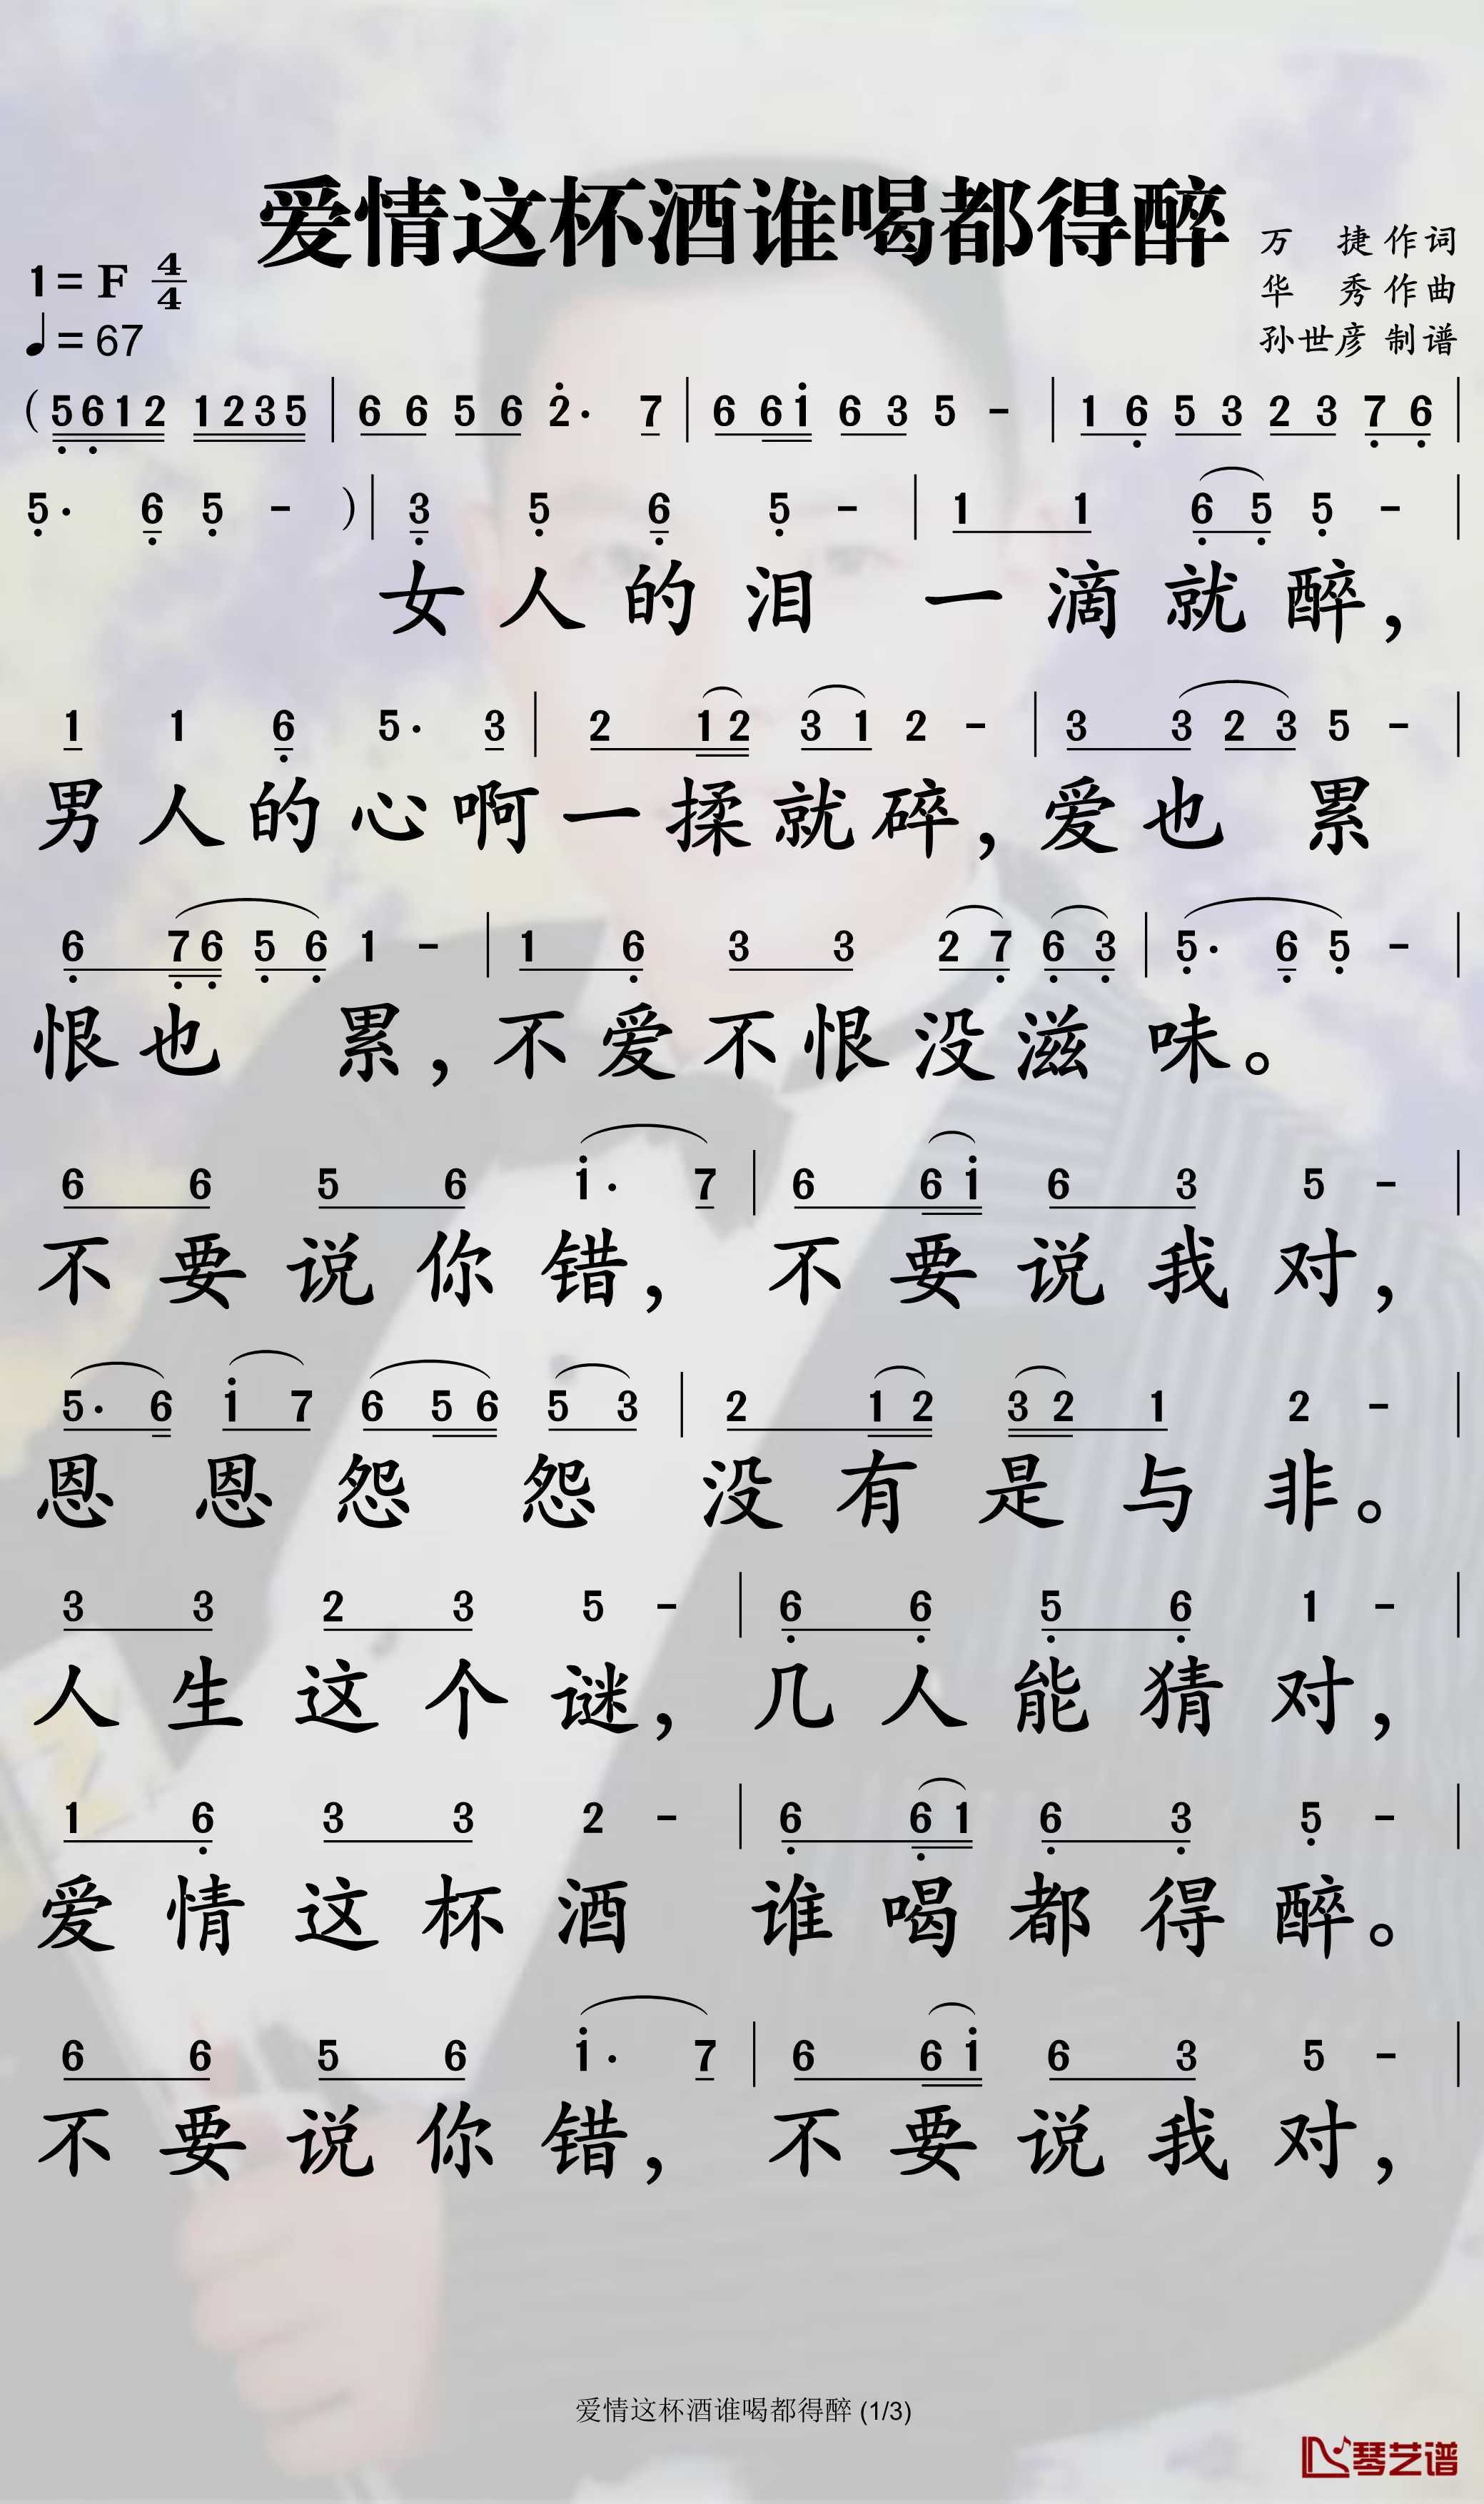 爱情这杯酒谁喝都得醉
万 捷 作词
1=F 4/4
华 秀 作曲
♩=67
孙世彦 制谱
(5̣6̣12 1235 | 66 56 2̇· 7 | 661̇ 63 5 - | 16̣ 53 23 7̣6̣ |
5̣· 6̣ 5̣ - ) | 3̣ 5̣ 6̣ 5̣ - | 1 1 6̣5̣ 5̣ - |
女人的泪 一滴就醉，
1 1 6̣ 5· 3 | 2 12 31 2 - | 3 3 23 5 - |
男人的心啊一揉就碎，爱也 累
6̣ 7̣6̣ 5̣6̣ 1 - | 1 6̣ 3 3 27̣ 6̣3̣ | 5̣· 6̣ 5̣ - |
恨也 累，不爱不恨没滋味。
6 6 5 6 1̇· 7 | 6 61̇ 6 3 5 - |
不要说你错，不要说我对，
5· 6 1̇ 7 6 56 5 3 | 2 12 32 1 2 - |
恩恩怨怨没有是与非。
3 3 2 3 5 - | 6̣ 6̣ 5̣ 6̣ 1 - |
人生这个谜，几人能猜对，
1 6̣ 3 3 2 - | 6̣ 6̣1 6̣ 3̣ 5̣ - |
爱情这杯酒 谁喝都得醉。
6 6 5 6 1̇· 7 | 6 61̇ 6 3 5 - |
不要说你错，不要说我对，
爱情这杯酒谁喝都得醉 (1/3)
琴艺谱